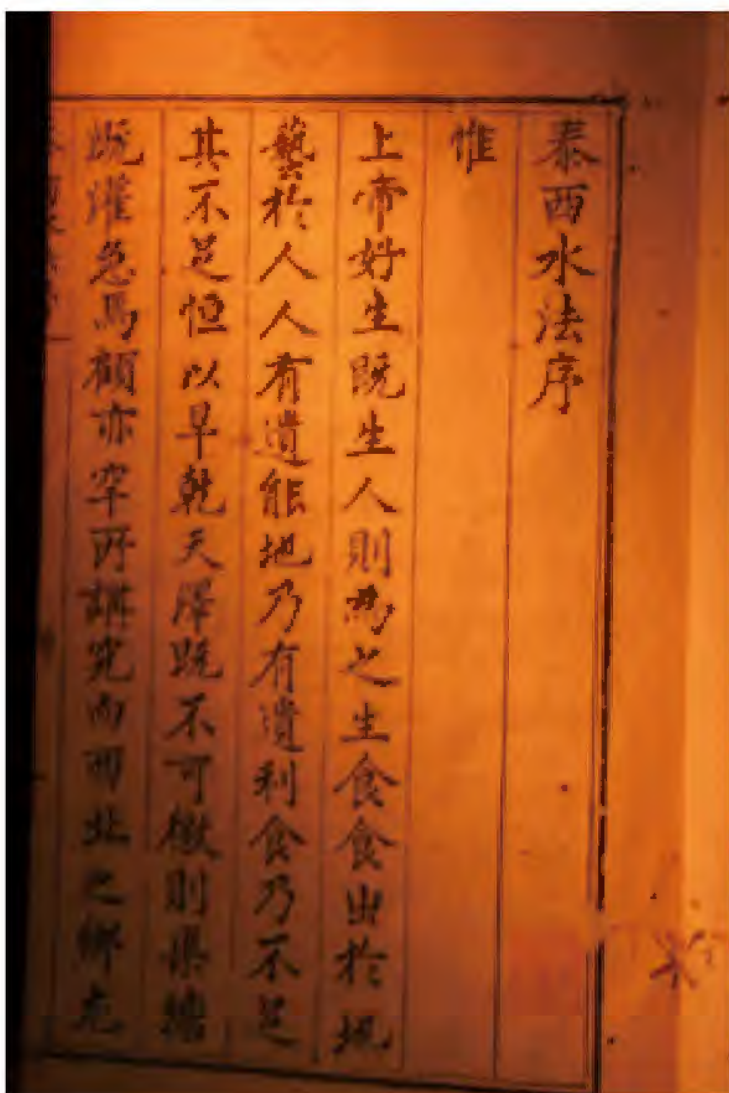 泰西水法序
惟
上帝好生既生人則為之生食食出於地
藝於人人有遺能地乃有遺利食乃不足
其不足恒以旱乾天澤既不可徼則渠塘
既灌急焉顧亦罕所講究而西北之鄉尤